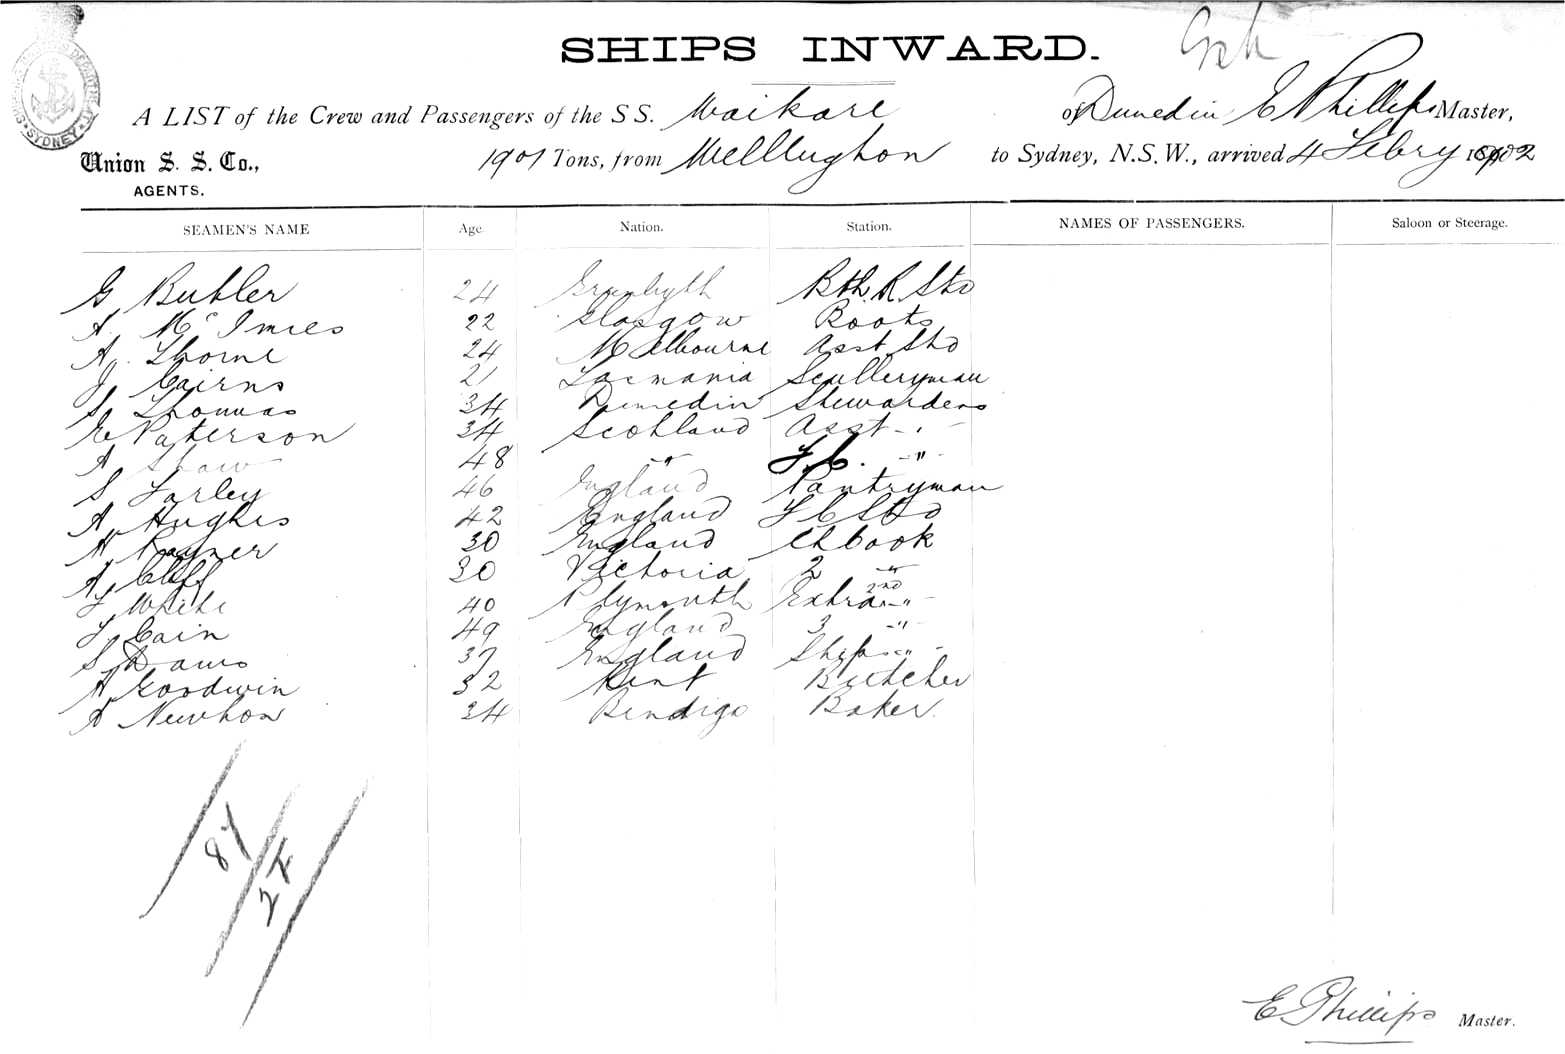 SHIPS INWARD.
A LIST of the Crew and Passengers of the S S. Waikare of Dunedin E Phillips Master,
Union S. S. Co., 1901 Tons, from Wellington to Sydney, N.S.W., arrived 4 Febry 1902
AGENTS.
SEAMEN'S NAME Age Nation. Station. NAMES OF PASSENGERS. Saloon or Steerage.
G Butler 24 Bth. R Std
A. McImies 22 Glasgow Boots
A. Thorne 24 Melbourne Asst Std
J Cairns 21 Tasmania Sculleryman
S Thomas 34 Dunedin Stewardess
E Paterson 34 Scotland Asst - " -
A Shaw 48 - " - F.C. - " -
S Farley 46 England Pantryman
A Hughes 42 England F C Std
H Rayner 30 England Ch Cook
A Cliff 30 Victoria 2 - " -
F White 40 Plymouth Extra 2nd - " -
F Cain 49 England 3 - " -
S Daws 37 England Ships - " -
H Goodwin 32 Kent Butcher
A Newton 34 Bendigo Baker.
87
E Phillips Master.